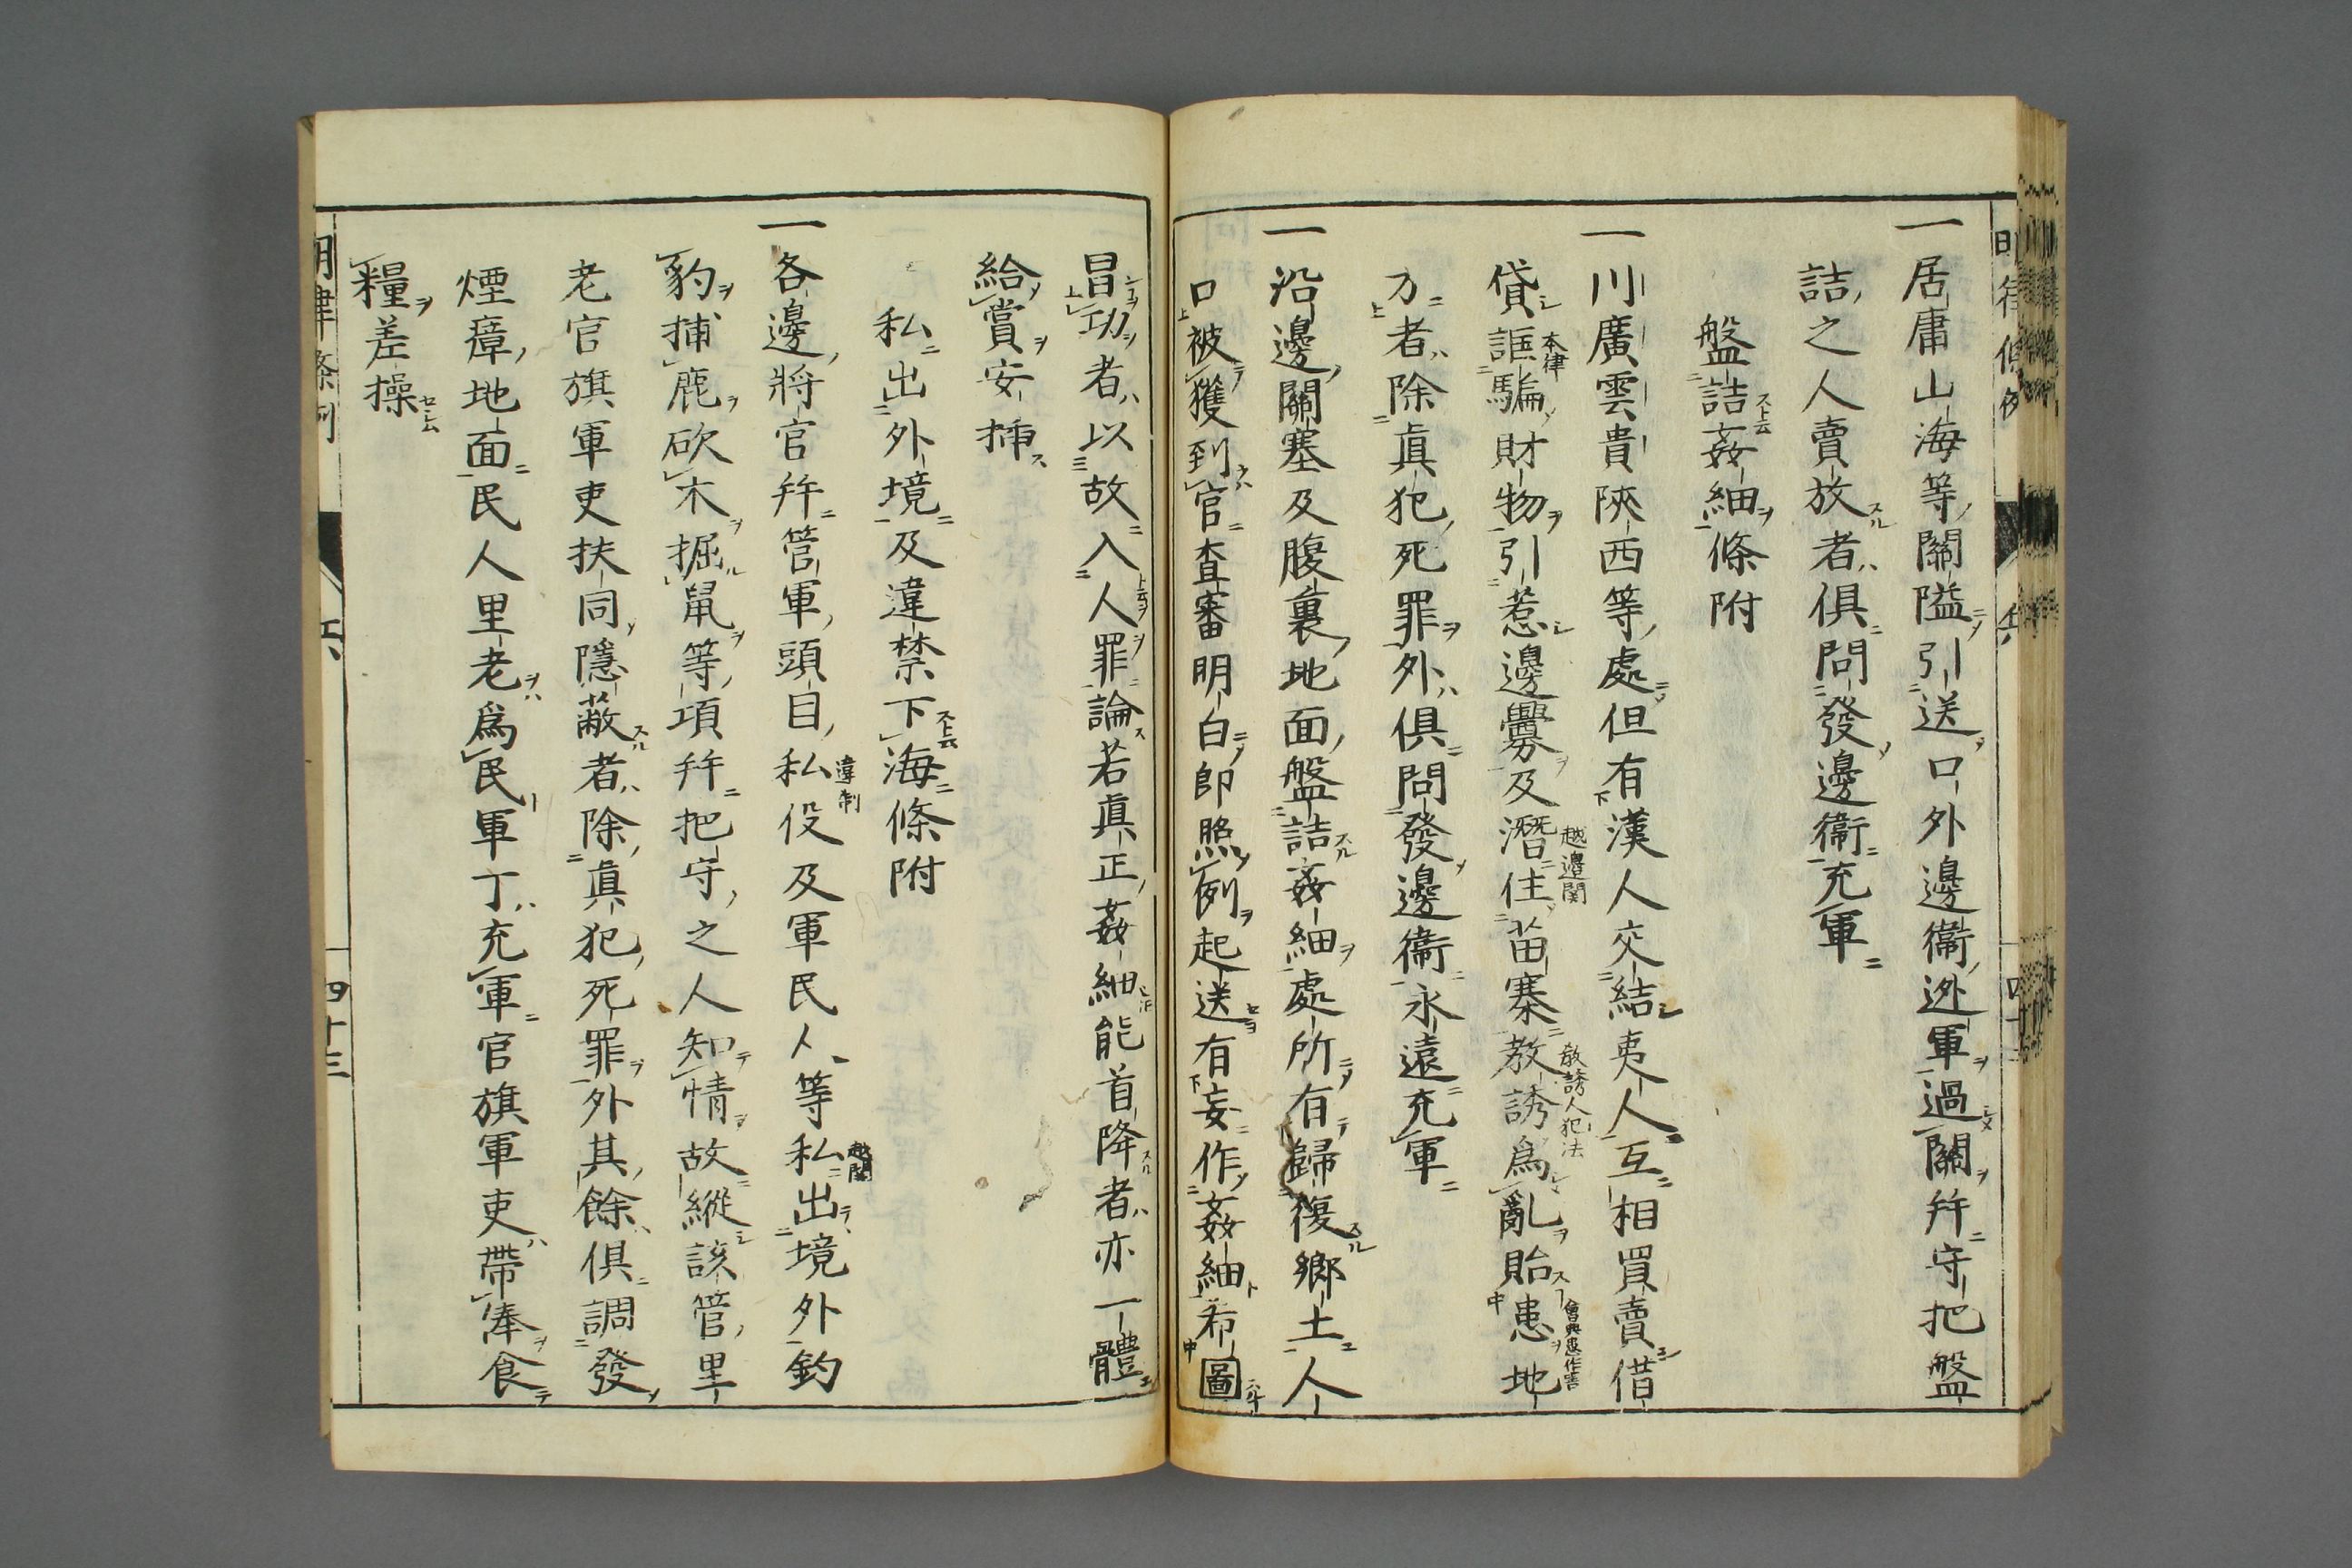 一居庸山海等關隘引送口外邊衞逃軍過關幷守把盤
詰之人賣放者俱問發邊衞充軍
盤詰姦細條附
一川廣雲貴陝西等處但有漢人交結夷人互相買賣借
貸誆騙財物引惹邊釁及潛住苗寨敎誘爲亂貽患地
本律
越邊関
敎誘人犯法
會典患作害
方者除眞犯死罪外俱問發邊衞永遠充軍
一沿邊關塞及腹裏地面盤詰姦細處所有歸復鄉土人
口被獲到官査審明白卽照例起送有妄作姦細希圖
冒功者以故入人罪論若眞正姦細能首降者亦一體
給賞安揷
私出外境及違禁下海條附
一各邊將官幷管軍頭目私役及軍民人等私出境外釣
違制
越関
豹捕鹿砍木掘鼠等項幷把守之人知情故縱該管里
老官旗軍吏扶同隱蔽者除眞犯死罪外其餘俱調發
煙瘴地面民人里老爲民軍丁充軍官旗軍吏帶俸食
糧差操
明律條例
兵
四十三